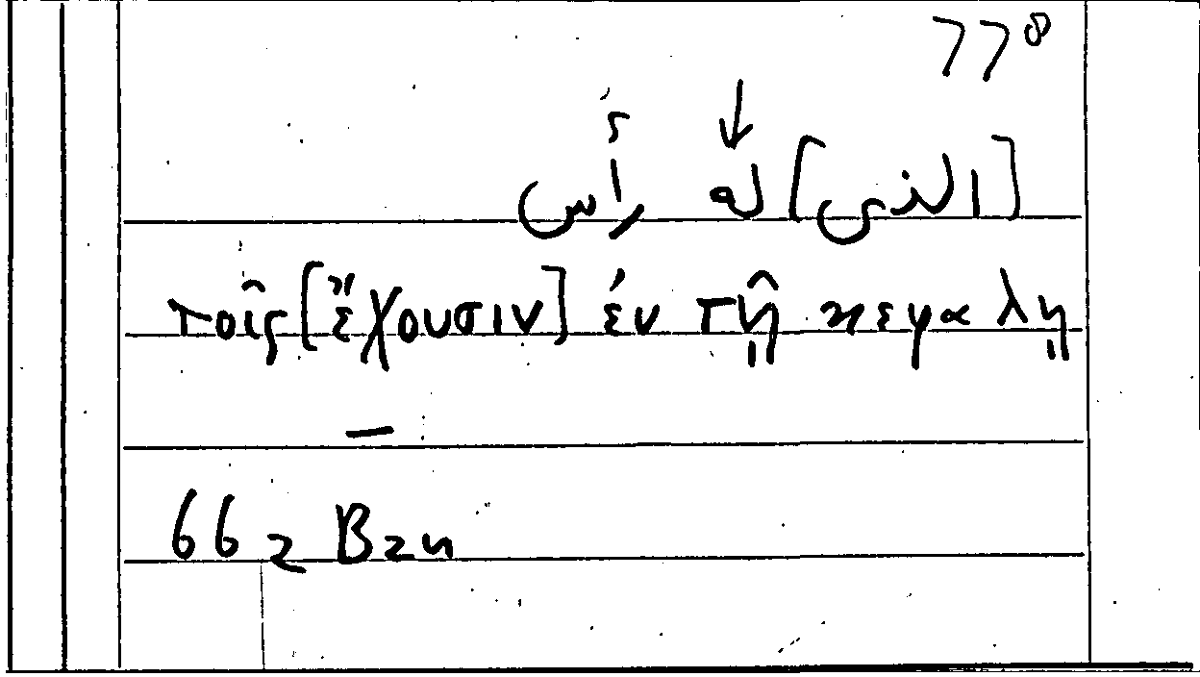 778
[الذى] له رأس
τοῖς [ἔχουσιν] ἐν τῇ κεφαλῇ
—
662 B24